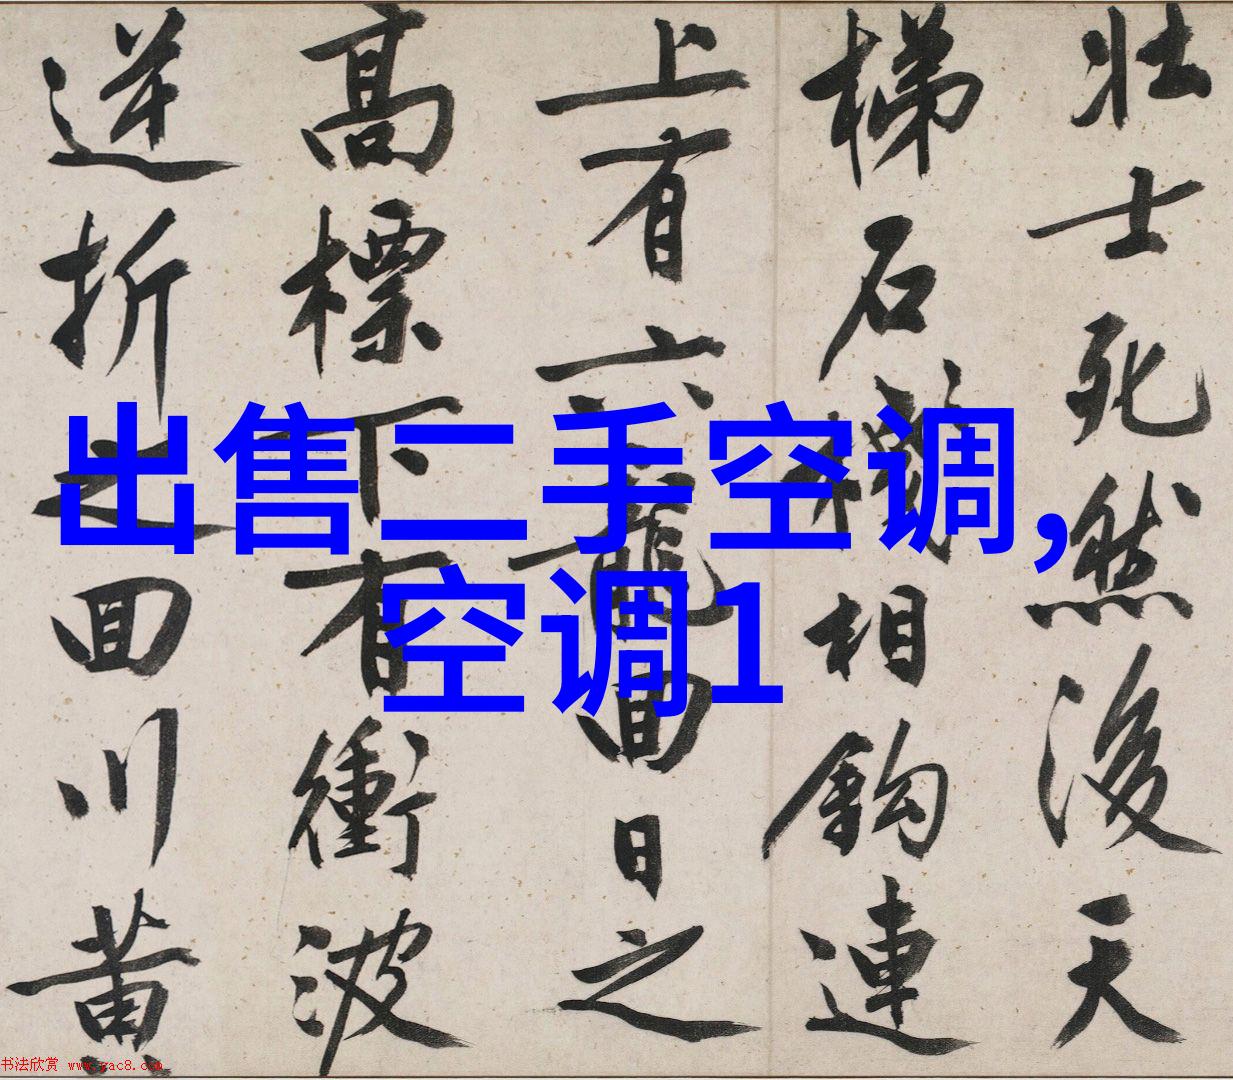 壮士死然後天
梯石棧相鉤連
上有六龍回日之
高標下有衝波
逆折之回川黄
出售二手空调,
空调1
书法欣赏 www.yac8.com